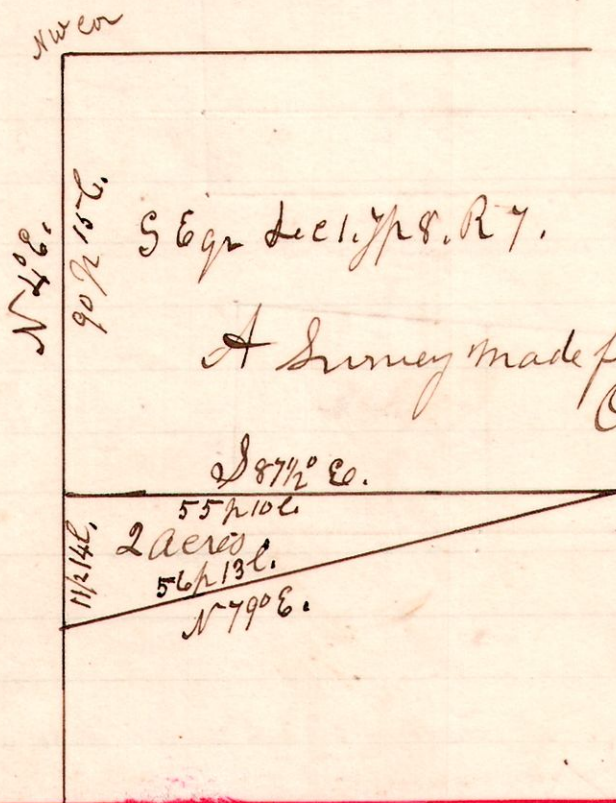 NW cor
N 4° E.
90 p 15 l.
S E qr Sec 1. Tp 8. R 7.
A Survey made f
S 87 1/2° E.
55 p 10 l.
11 p 14 l.
2 acres.
56 p 13 l.
N 79° E.